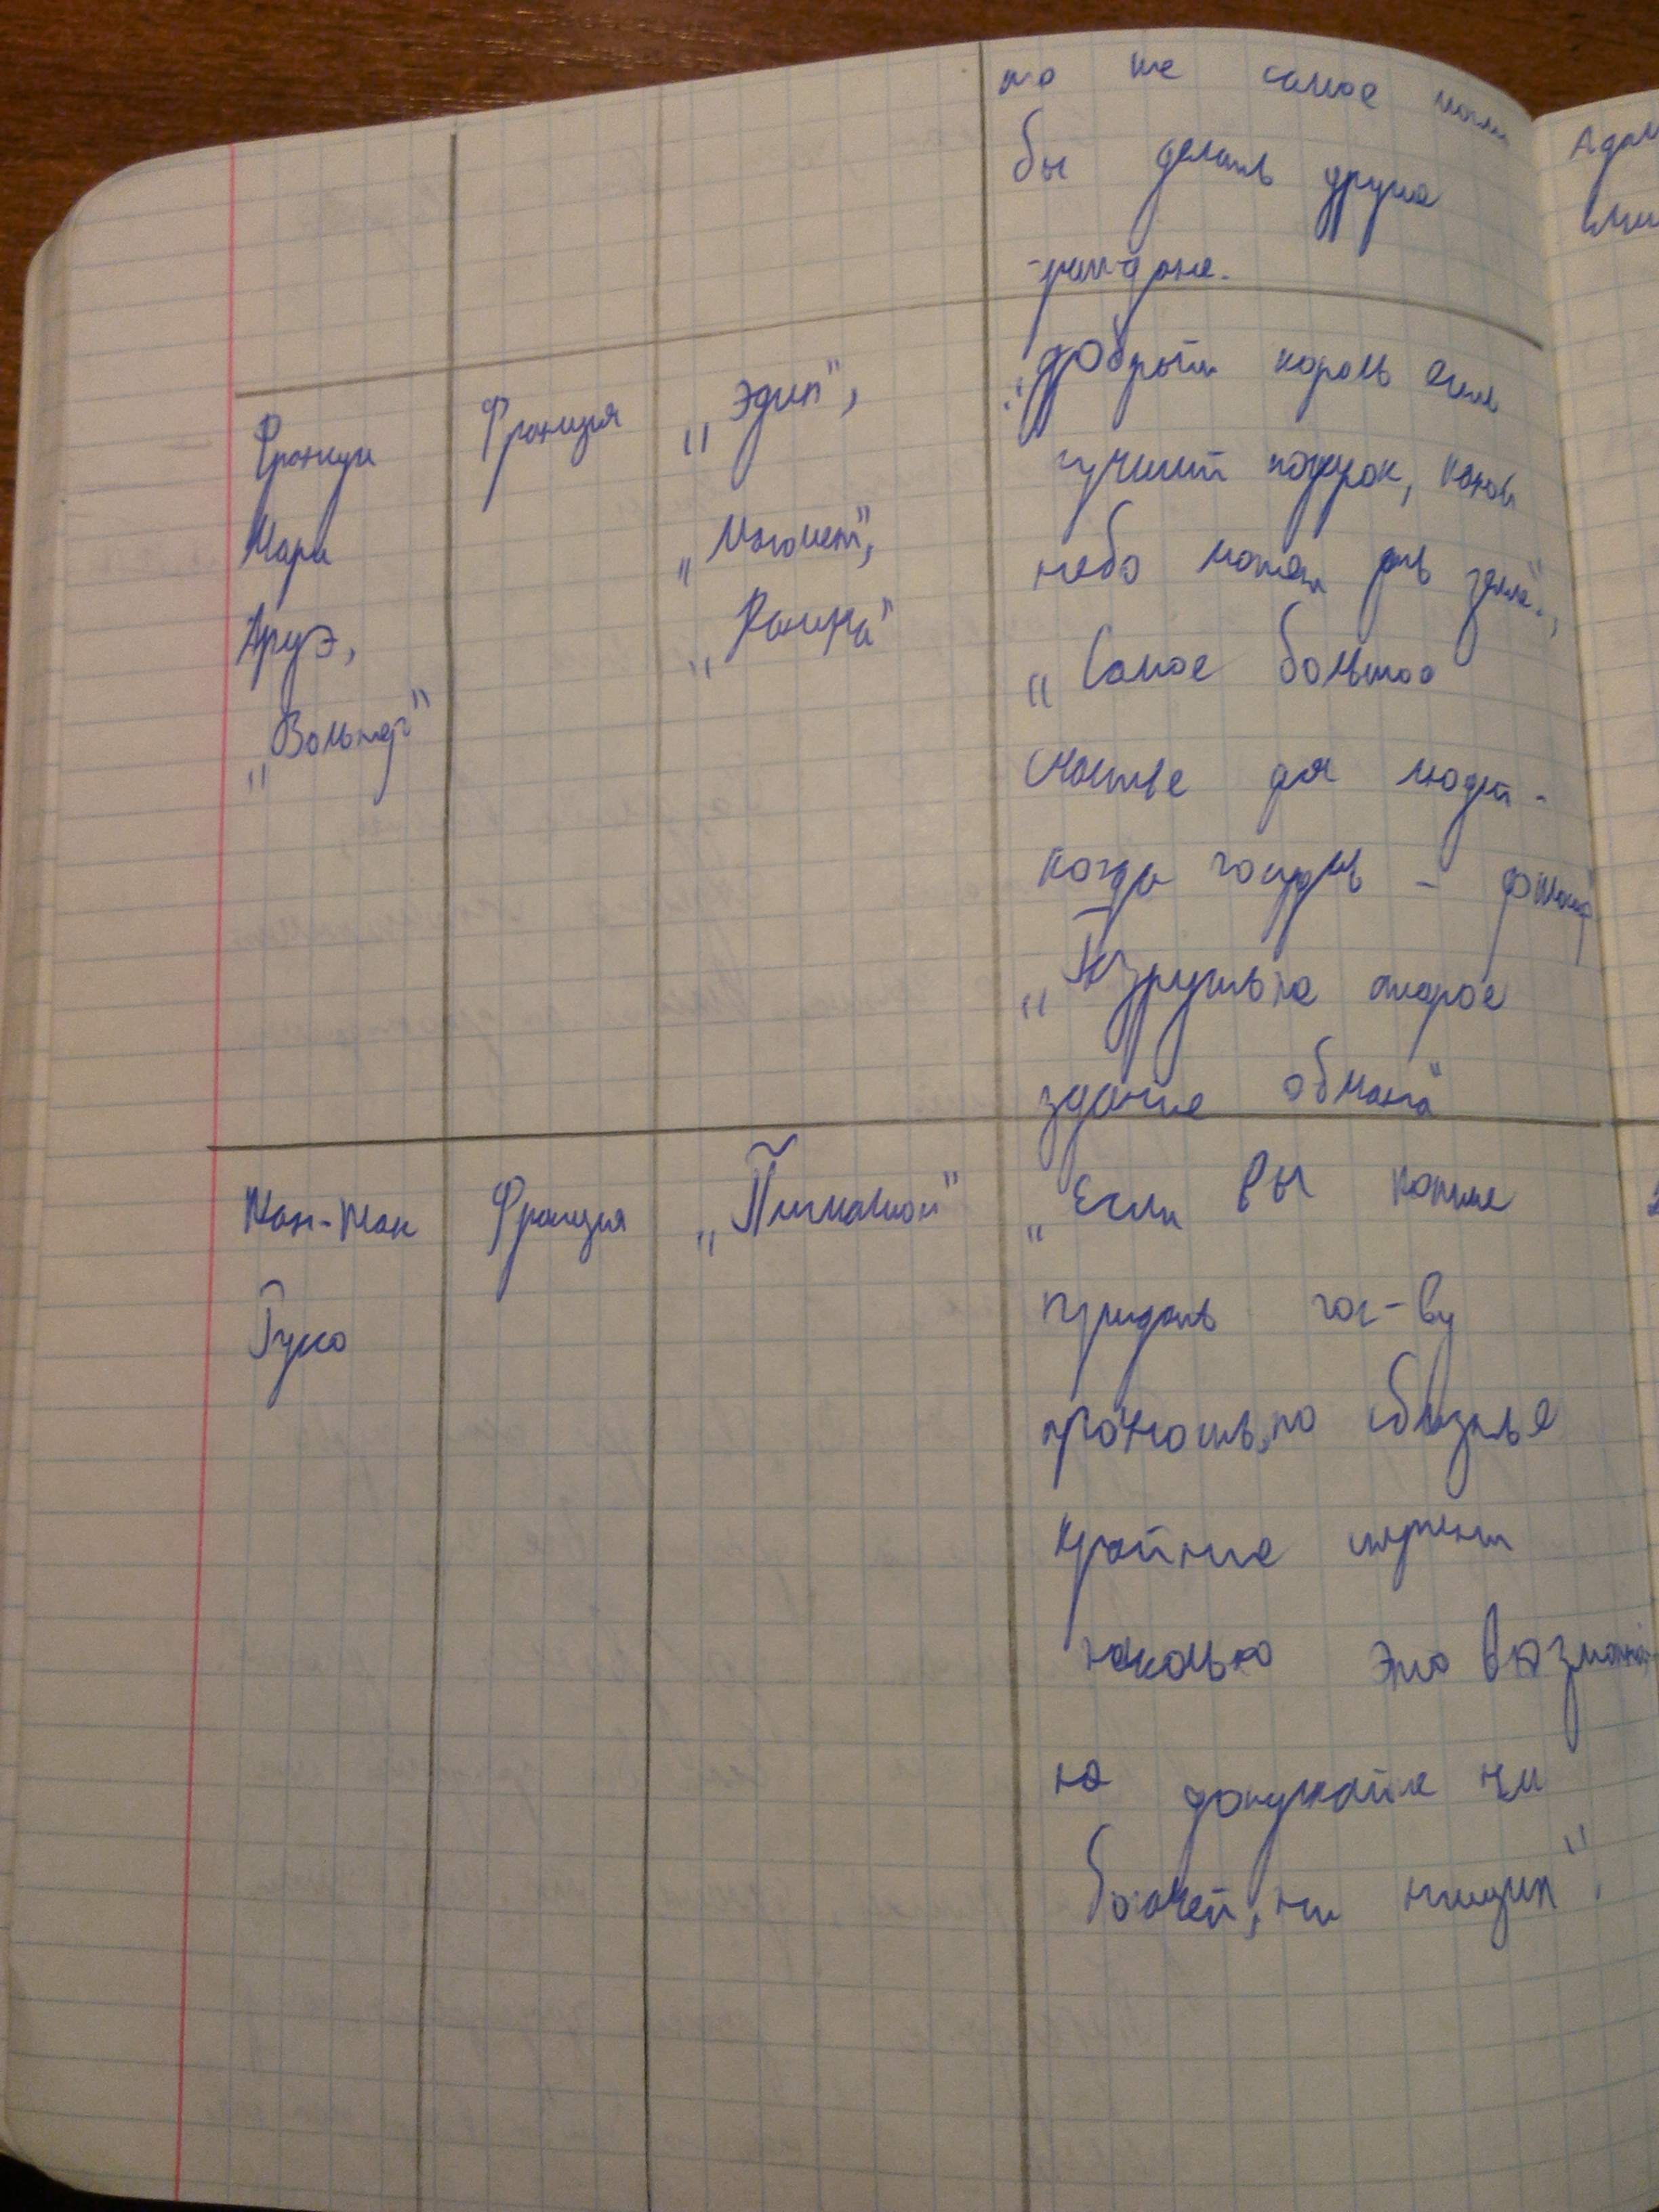 то же самое могли
бы делать другие
граждане.
Франсуа Франция „Эдип",
Мари „Магомет",
Аруэ, „Заира"
„Вольтер"
„Добрый король есть
лучший подарок, какой
небо может дать земле",
„Самое большое
счастье для людей -
когда государь - философ"
„Разрушьте старое
здание обмана"
Жан-Жак Франция „Пигмалион"
Руссо
„Если вы хотите
придать гос-ву
прочность, то сблизьте
крайние ступени
насколько это возможно
не допускайте ни
богачей, ни нищих".
Адам